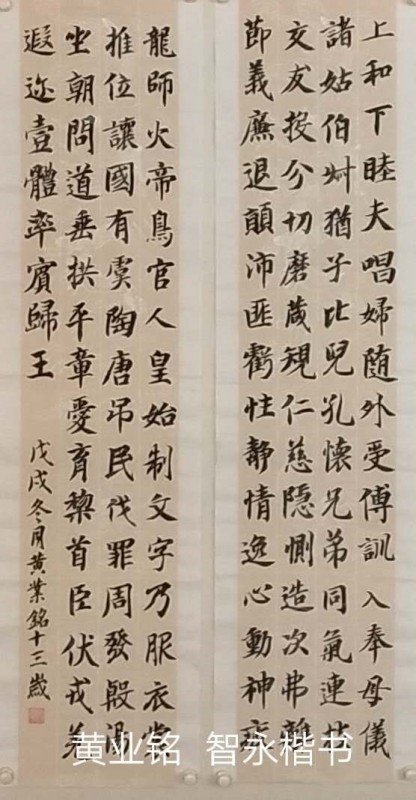 上和下睦夫唱婦随外受傅訓入奉母儀
諸姑伯叔猶子比兒孔懷兄弟同氣連枝
交友投分切磨葴規仁慈隱惻造次弗離
節義廉退顛沛匪虧性靜情逸心動神疲
龍師火帝鳥官人皇始制文字乃服衣裳
推位讓國有虞陶唐吊民伐罪周發殷湯
坐朝問道垂拱平章愛育黎首臣伏戎羌
遐迩壹體率賓歸王
戊戌冬月黄業銘十三歲
黄业铭 智永楷书